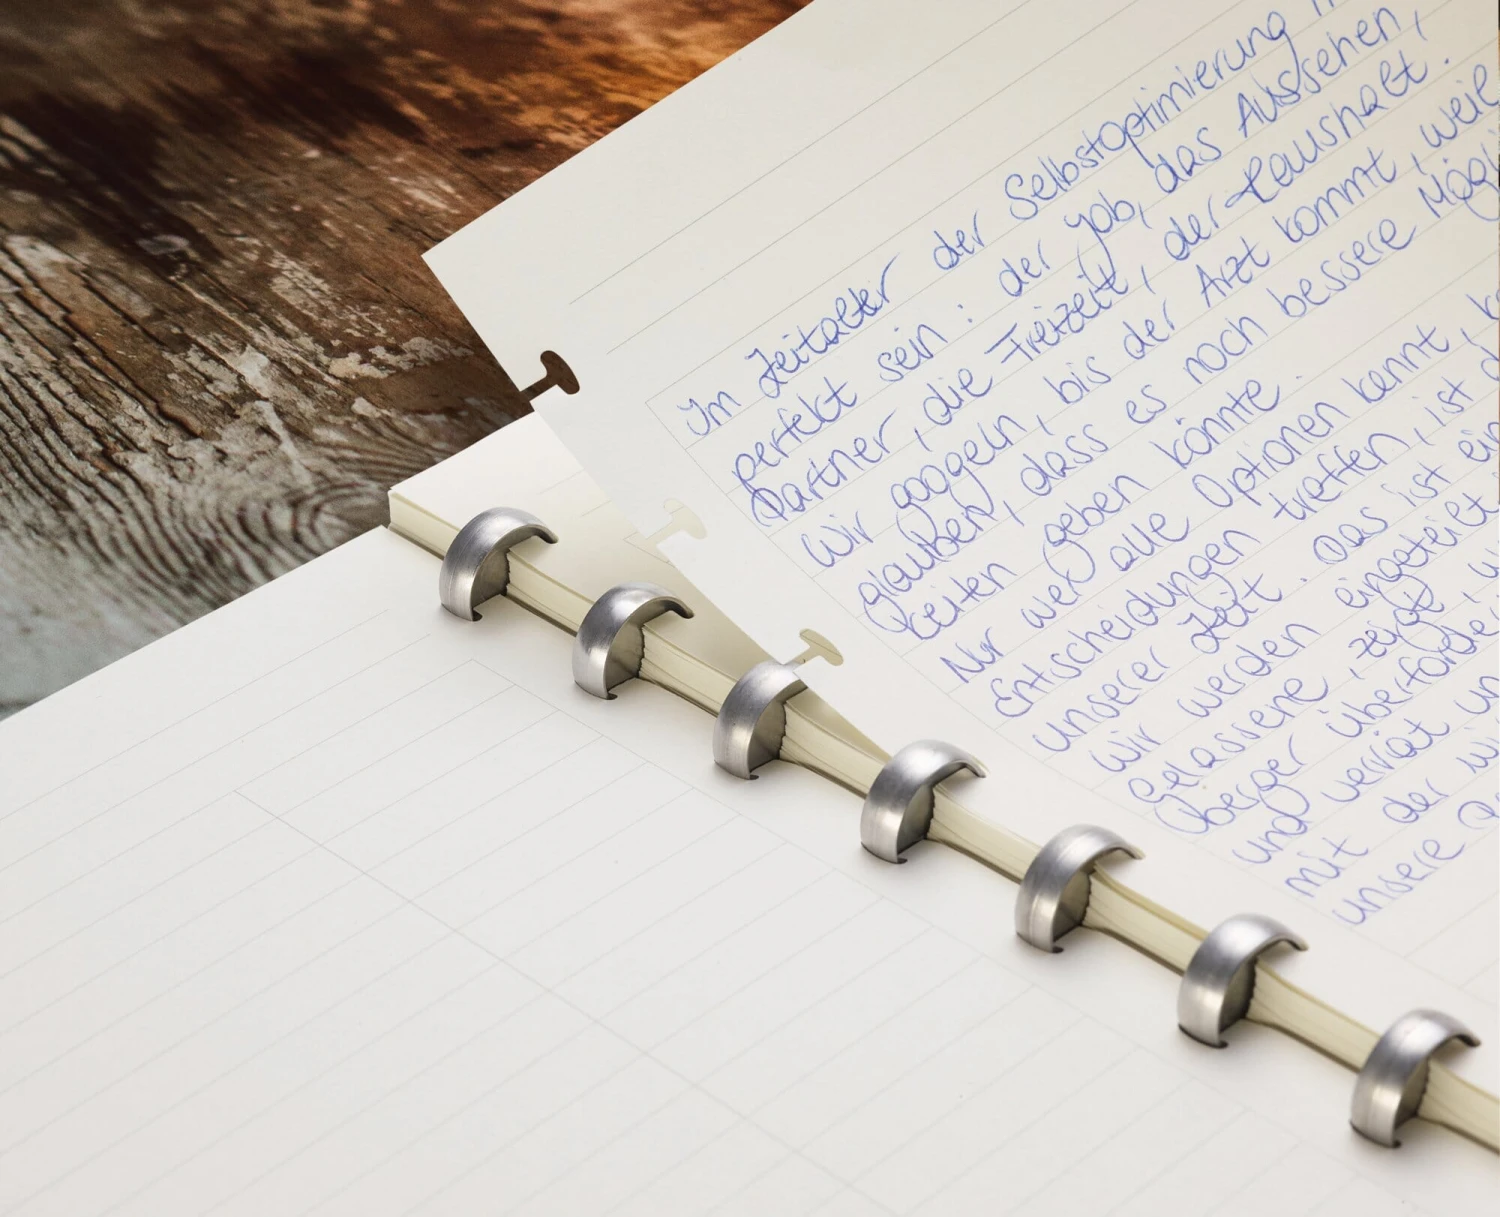 Im Zeitalter der Selbstoptimierung
perfekt sein: der Job, das Aussehen,
Partner, die Freizeit, der Haushalt.
Wir googeln, bis der Arzt kommt, weil
glauben, dass es noch bessere Mögli
keiten geben könnte.
Nur wer alle Optionen kennt,
Entscheidungen treffen, ist
unserer Zeit. Das ist ein
Wir werden eingeteilt
Gelassene, zeigt
überforder
und verrät un
mit der
unsere